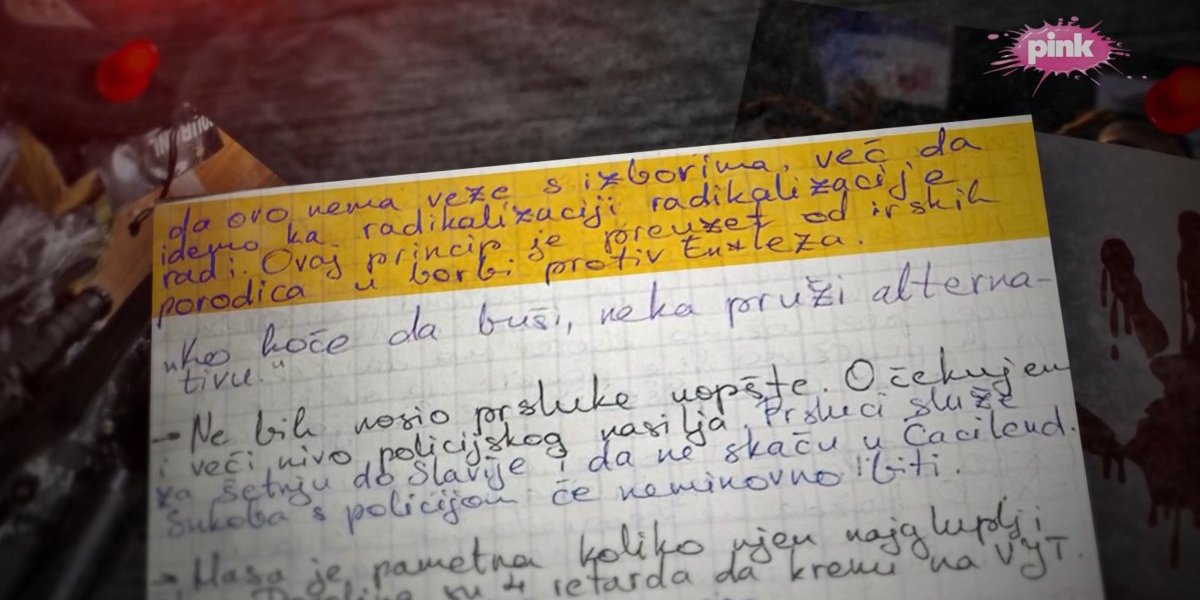 pink
da ovo nema veze s izborima, već da
idemo ka radikalizaciji radikalizacije
radi. Ovaj princip je preuzet od irskih
porodica u borbi protiv Engleza.
"Ko hoće da buši, neka pruži alterna-
tivu."
→ Ne bih nosio prsluke uopšte. Očekujem
i veći nivo policijskog nasilja. Prsluci služe
za šetnju do Slavije i da ne skaču u Ćacilend.
Sukoba s policijom će neminovno biti.
→ Masa je pametna koliko njen najgluplji
su 4 retarda da krenu na VJT.